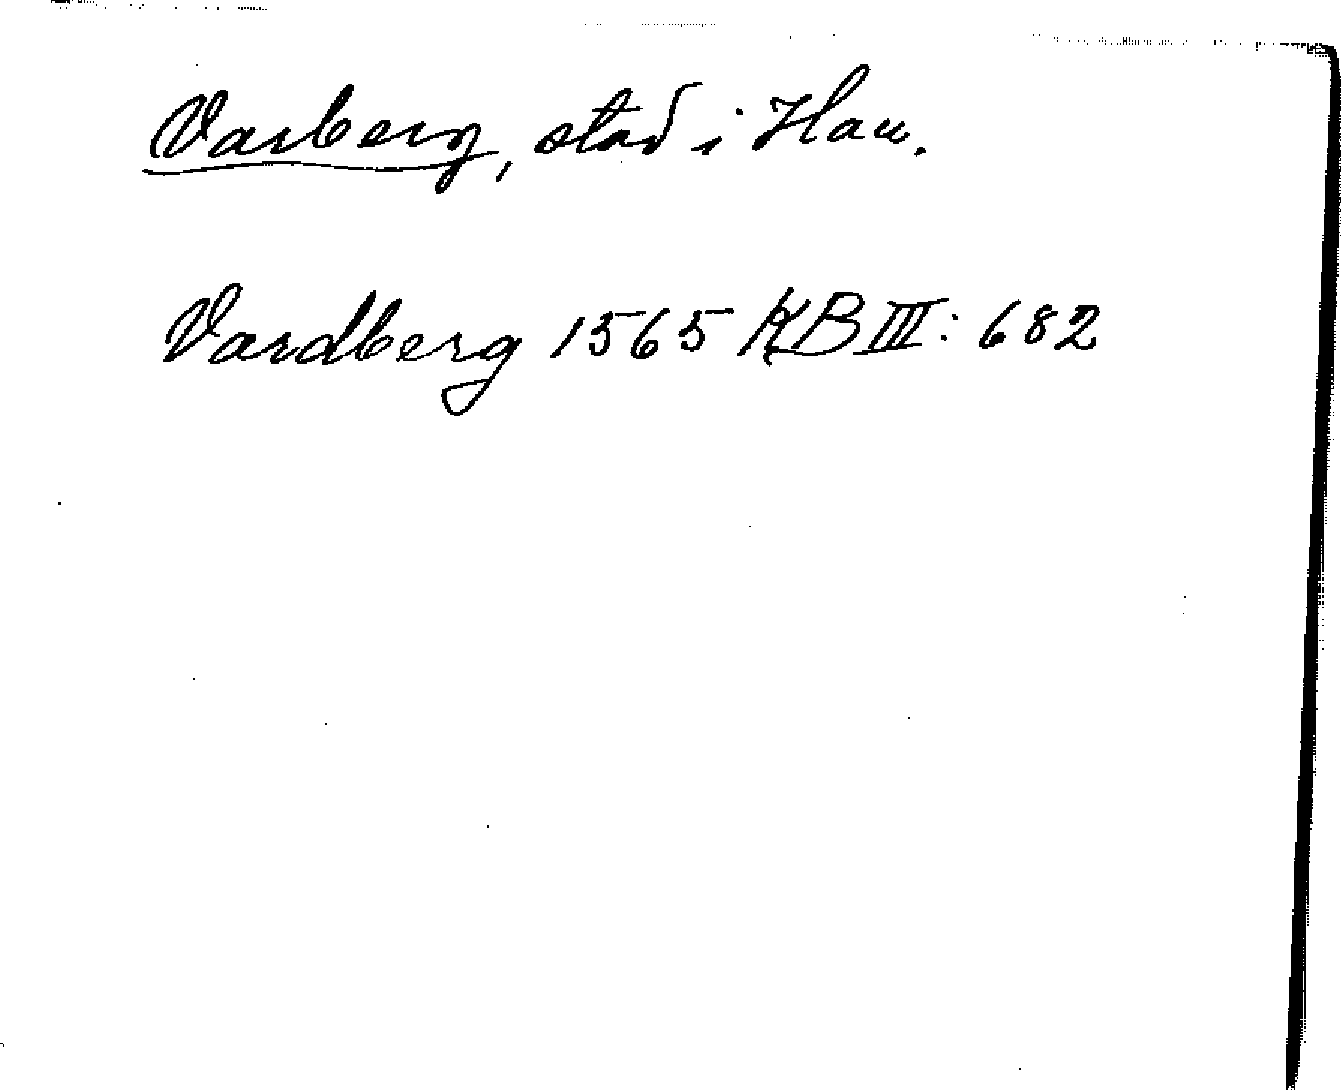 Varberg, stad i Han.
Vardberg 1565 KB III: 682